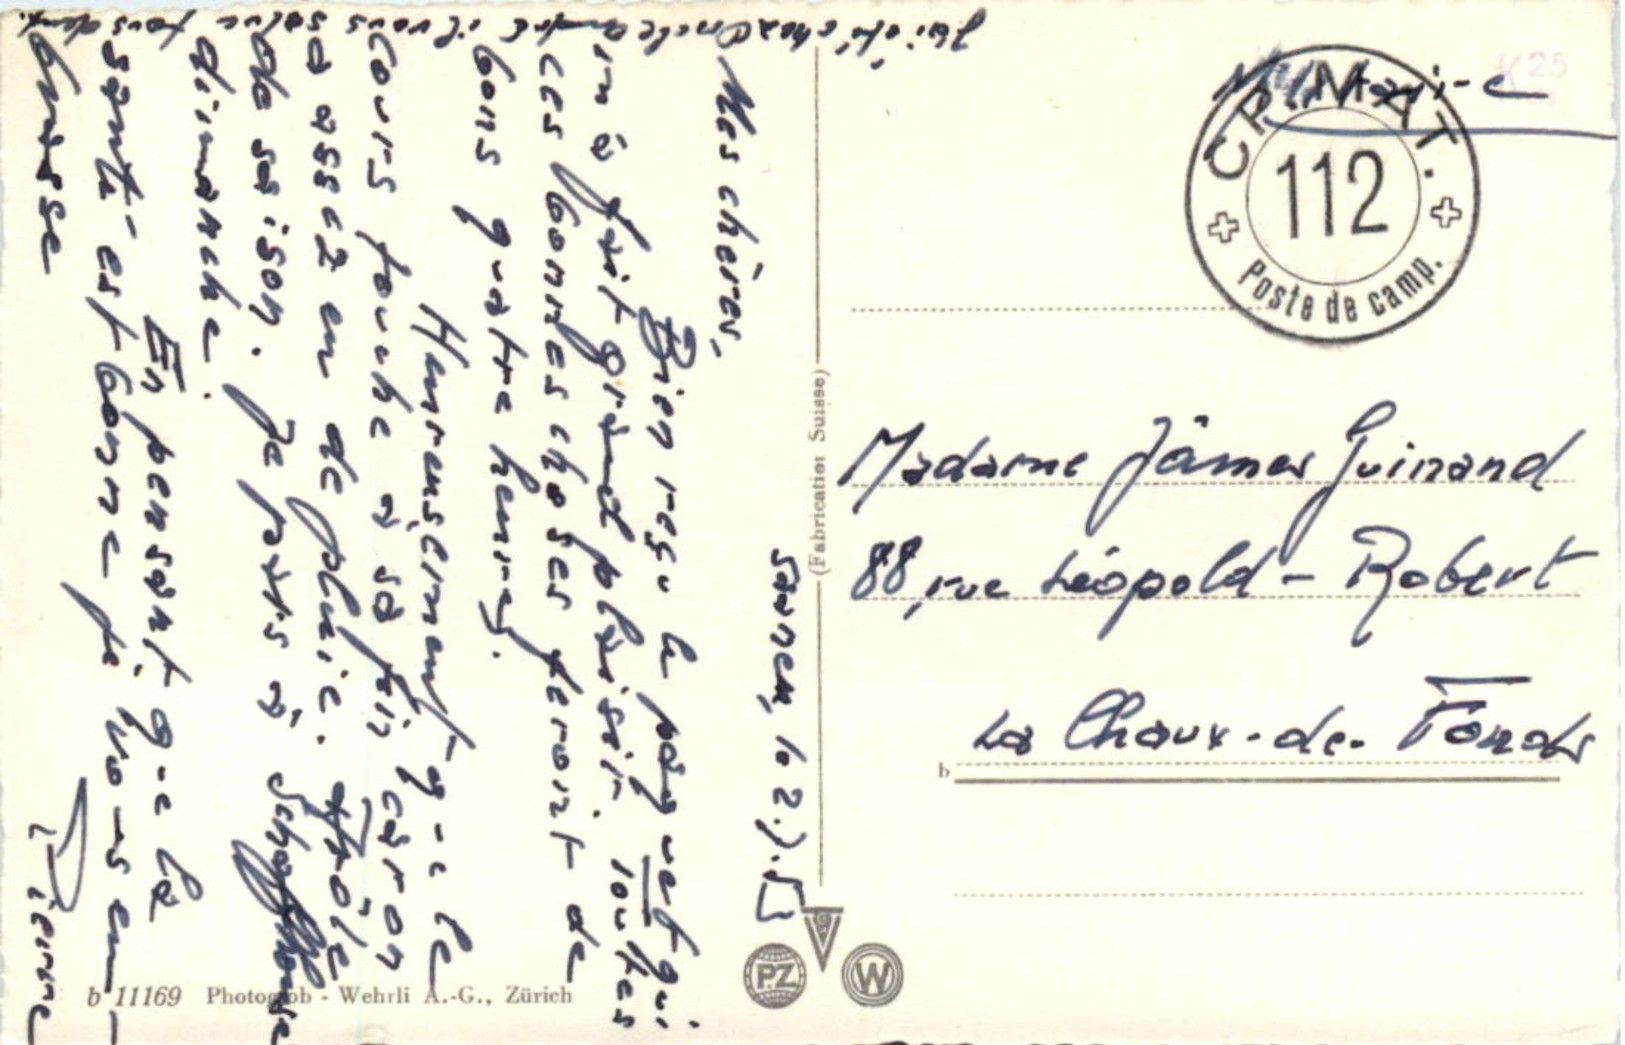 Saanen, le 2.2.5
Mes chères,
Bien reçu le paquet qui
m'a fait grand plaisir. Toutes
ces bonnes choses feront de
bons quatre heures.
Heureusement que le
cours touche à sa fin car on
a assez en de pluie. Drôle
de saison. Je pars à Schaffhouse
dimanche.
En pensant que la
santé est bonne je vous em-
brasse
Pierre
J'ai été chez Oncle André il vous salue tous deux.
Militaire
K 25
CP. MAT.
112
Poste de camp.
Madame Jâmes Guinand
88, rue Léopold-Robert
La Chaux-de-Fonds
b
(Fabrication Suisse)
G
P.Z
W
b 11169 Photoglob - Wehrli A.-G., Zürich